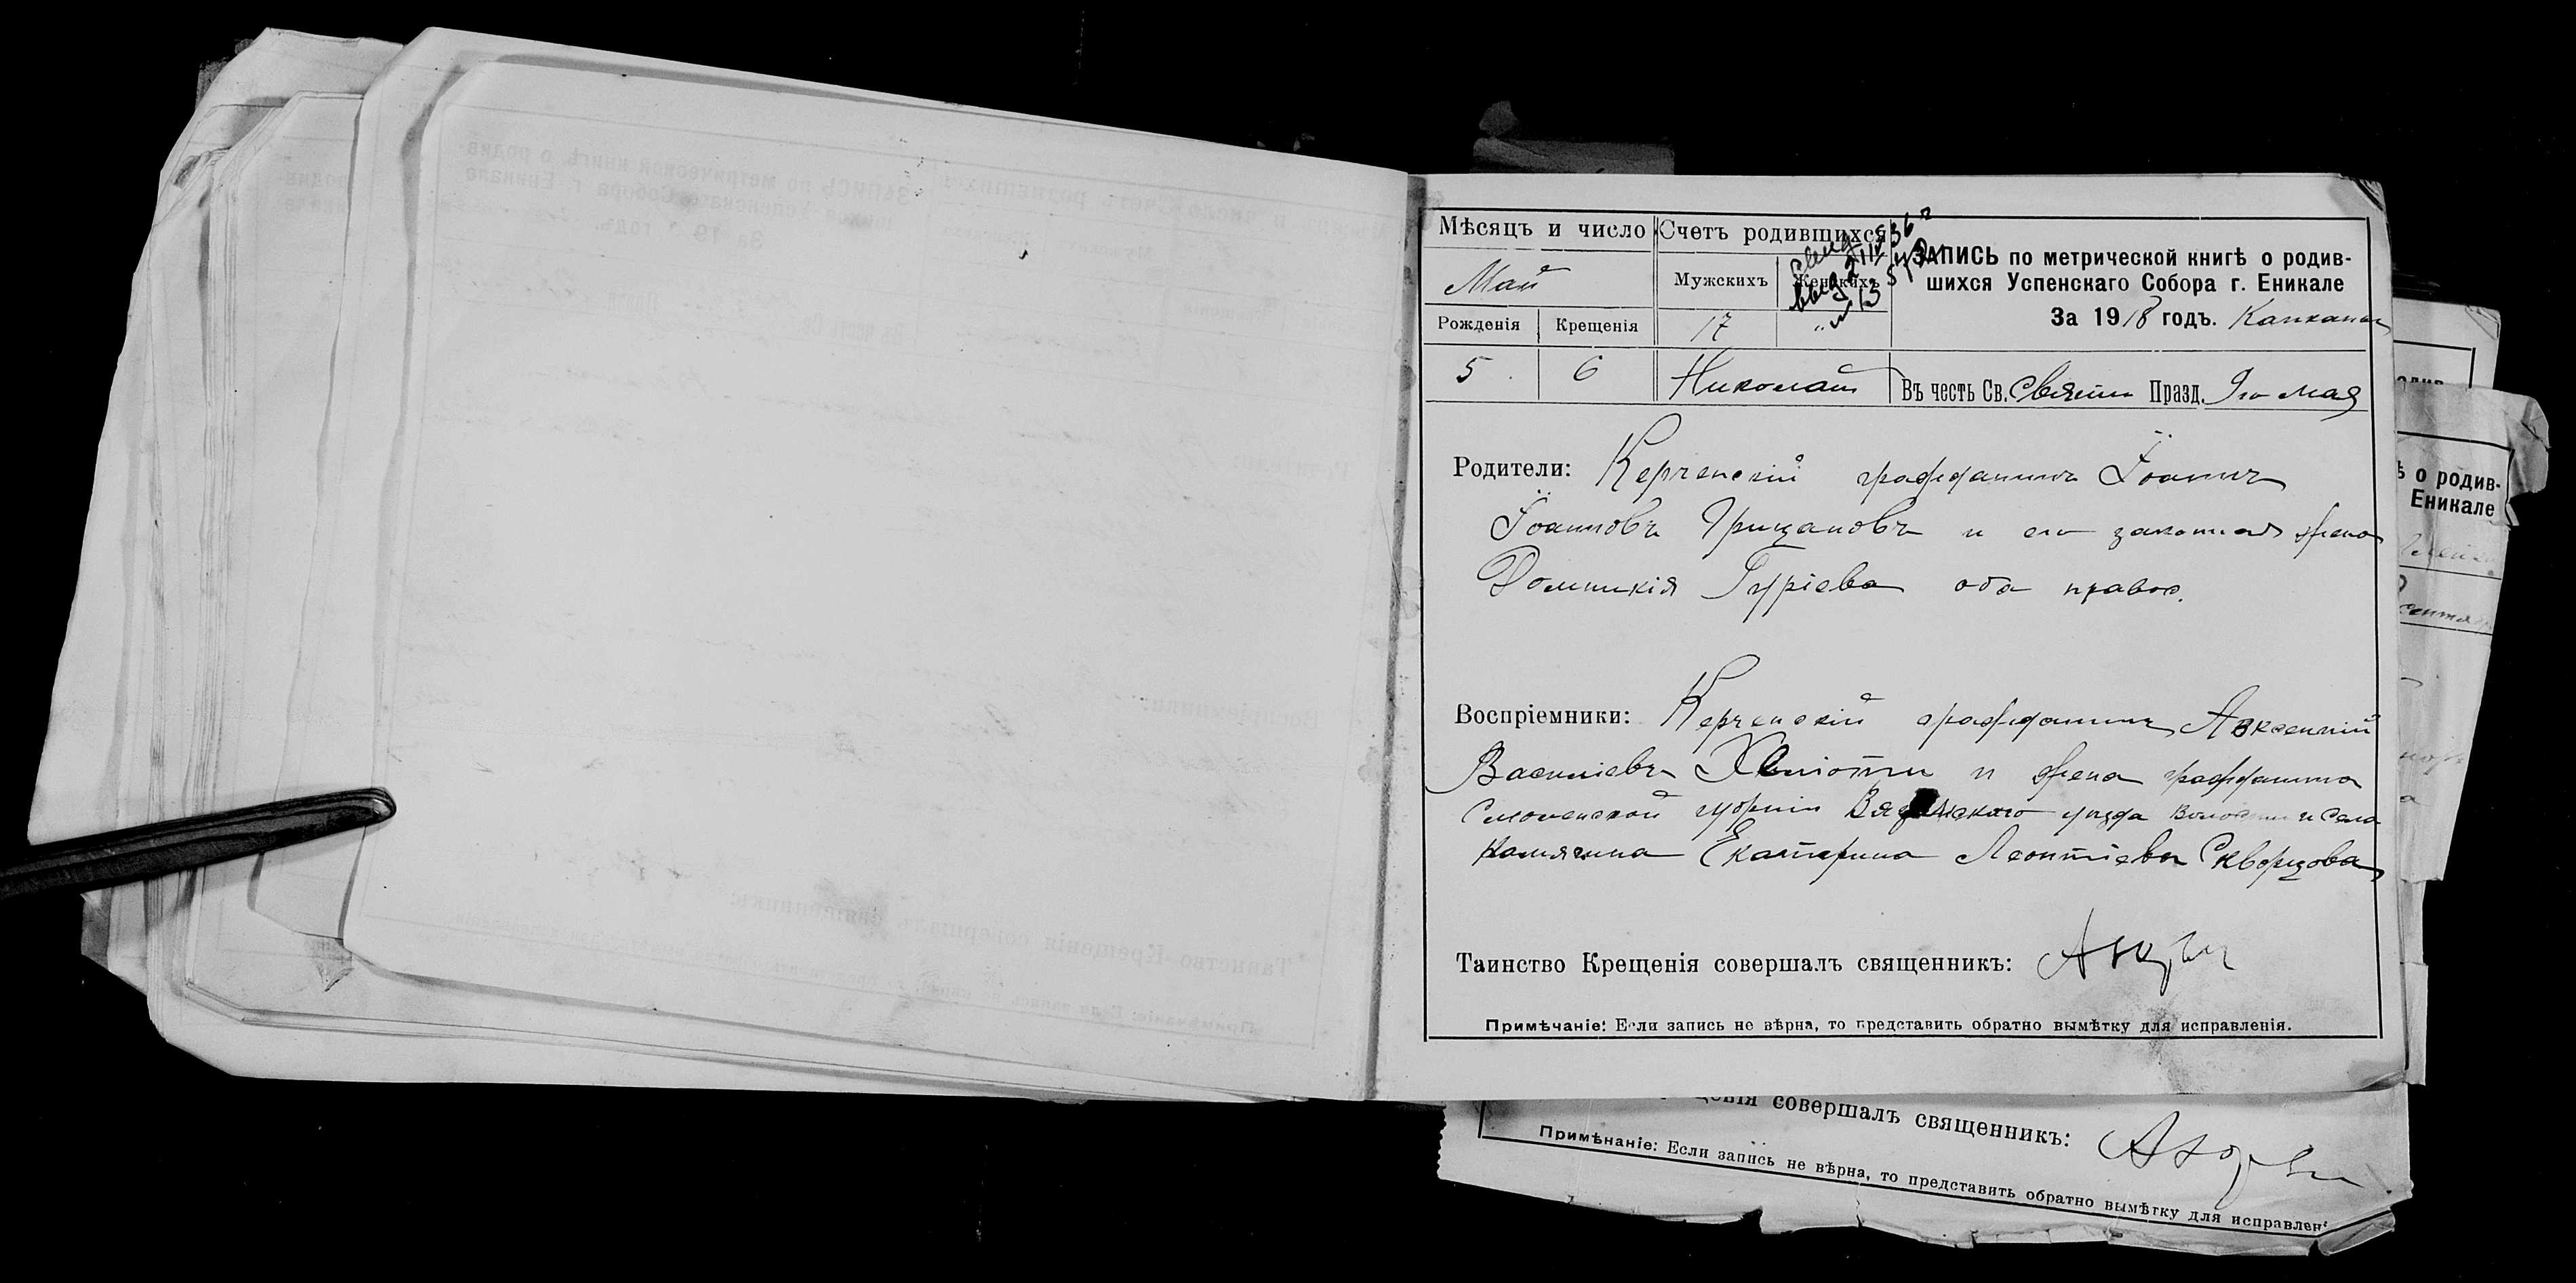 Мѣсяцъ и число
Счетъ родившихся
Май
Мужскихъ
Женскихъ
Рожденія
Крещенія
17
"
ЗАПИСЬ по метрической книгѣ о родив-
шихся Успенскаго Собора г. Еникале
За 1918 годъ.
5
6
Николай
Въ честь Св. Празд. 9го мая
Родители: Керченскій гражданинъ Іоаннъ
Іоанновъ Грицановъ и его законная жена
Домникія Гуріева оба правос.
Воспріемники: Керченскій гражданинъ Авксентій
Васильевъ и жена гражданина
Смоленской губерніи Вяземскаго уѣзда волости и села
Екатерина Леонтіева Скворцова
Таинство Крещенія совершалъ священникъ:
Примѣчаніе: Если запись не вѣрна, то представить обратно вымѣтку для исправленія.
ѣ о родив-
Еникале
щенія совершалъ священникъ:
Примѣнаніе: Если запись не вѣрна, то представить обратно вымѣтку для исправлен